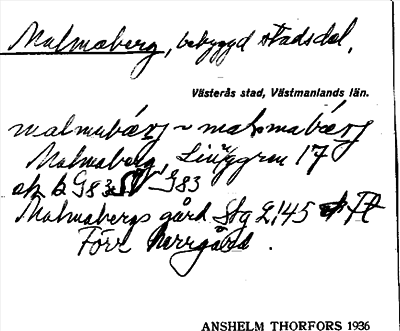 Malmaberg, bebyggd stadsdel,
Västerås stad, Västmanlands län.
malmabärj ~ malmabärj
Malmaberg, Liunggren 17
ek b G 83 G 83
Malmabergs gård Stg 2:145
Förr Norrgård.
ANSHELM THORFORS 1936